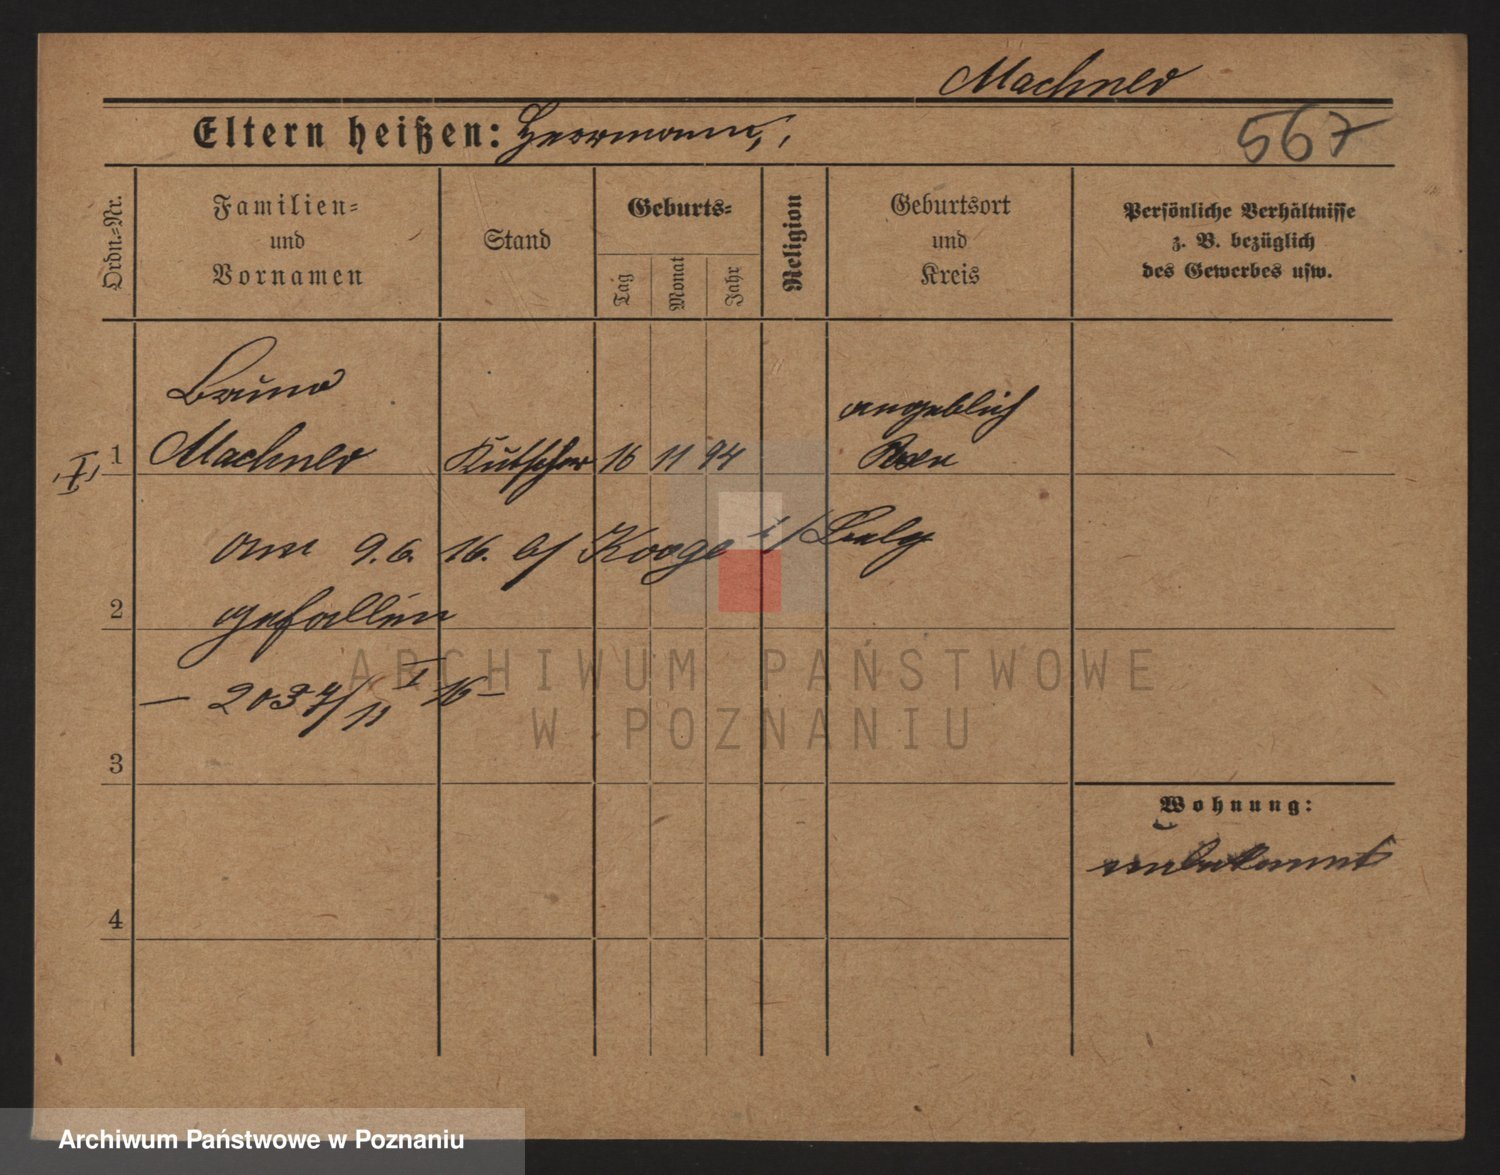 Machner
Eltern heißen: Herrmann, ,
567
Ordn.-Nr.
Familien- und Vornamen
Stand
Geburts-
Tag
Monat
Jahr
Religion
Geburtsort und Kreis
Persönliche Verhältnisse z. B. bezüglich des Gewerbes usw.
Bruno
angeblich
1 Machner Kutscher 16 11 94
am 9.6. 16. b/ Kooge i/ Belg
2 gefallen
– 2037/11 I 16 –
3
Wohnung:
unbekannt
4
ARCHIWUM PAŃSTWOWE
W POZNANIU
Archiwum Państwowe w Poznaniu